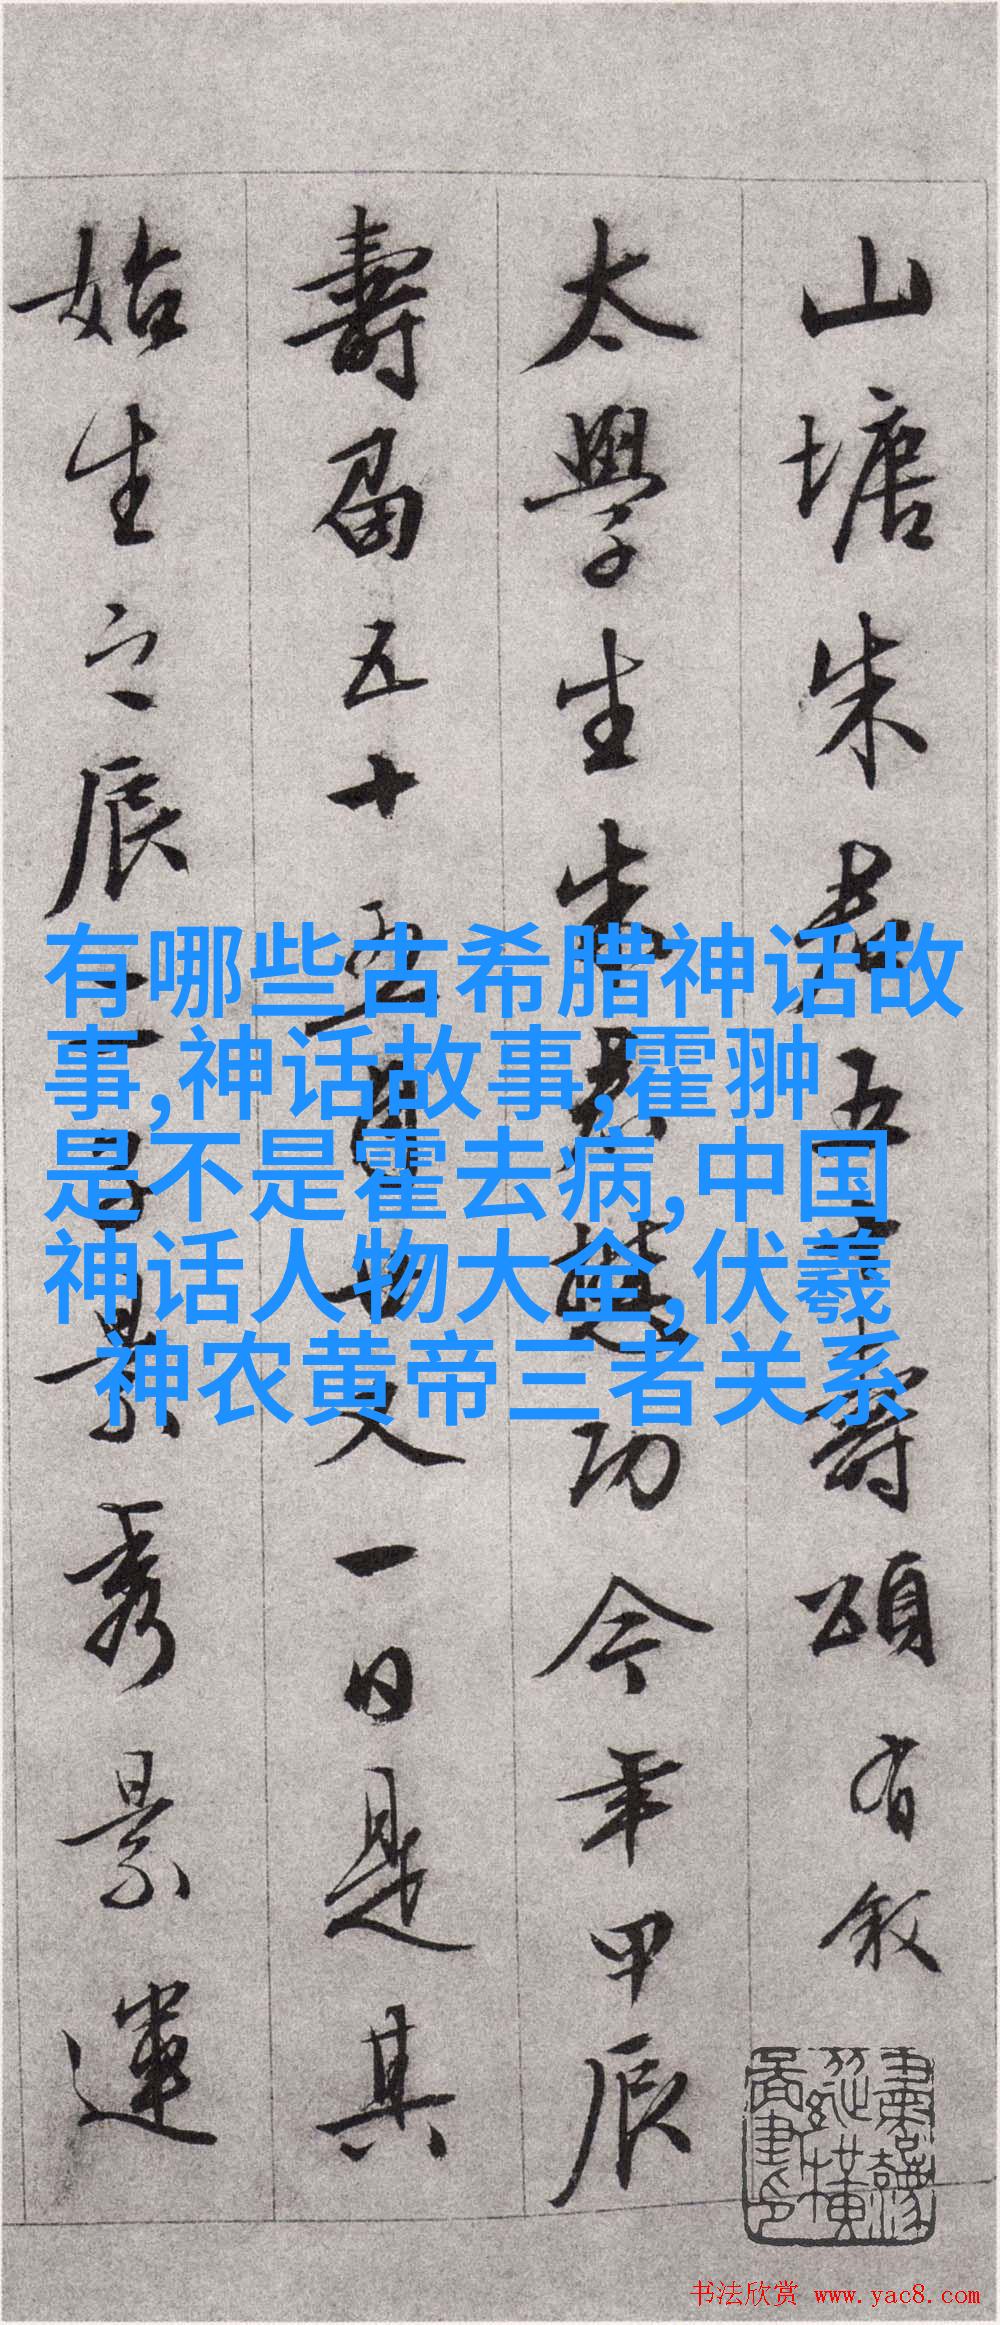 山塘朱君五十壽頌有敘
太學生朱功今年甲辰
壽五十又一日是其
始生之辰景秀景運
有哪些古希腊神话故
事,神话故事,霍翀
是不是霍去病,中国
神话人物大全,伏羲
神农黄帝三者关系
书法欣赏 www.yac8.com